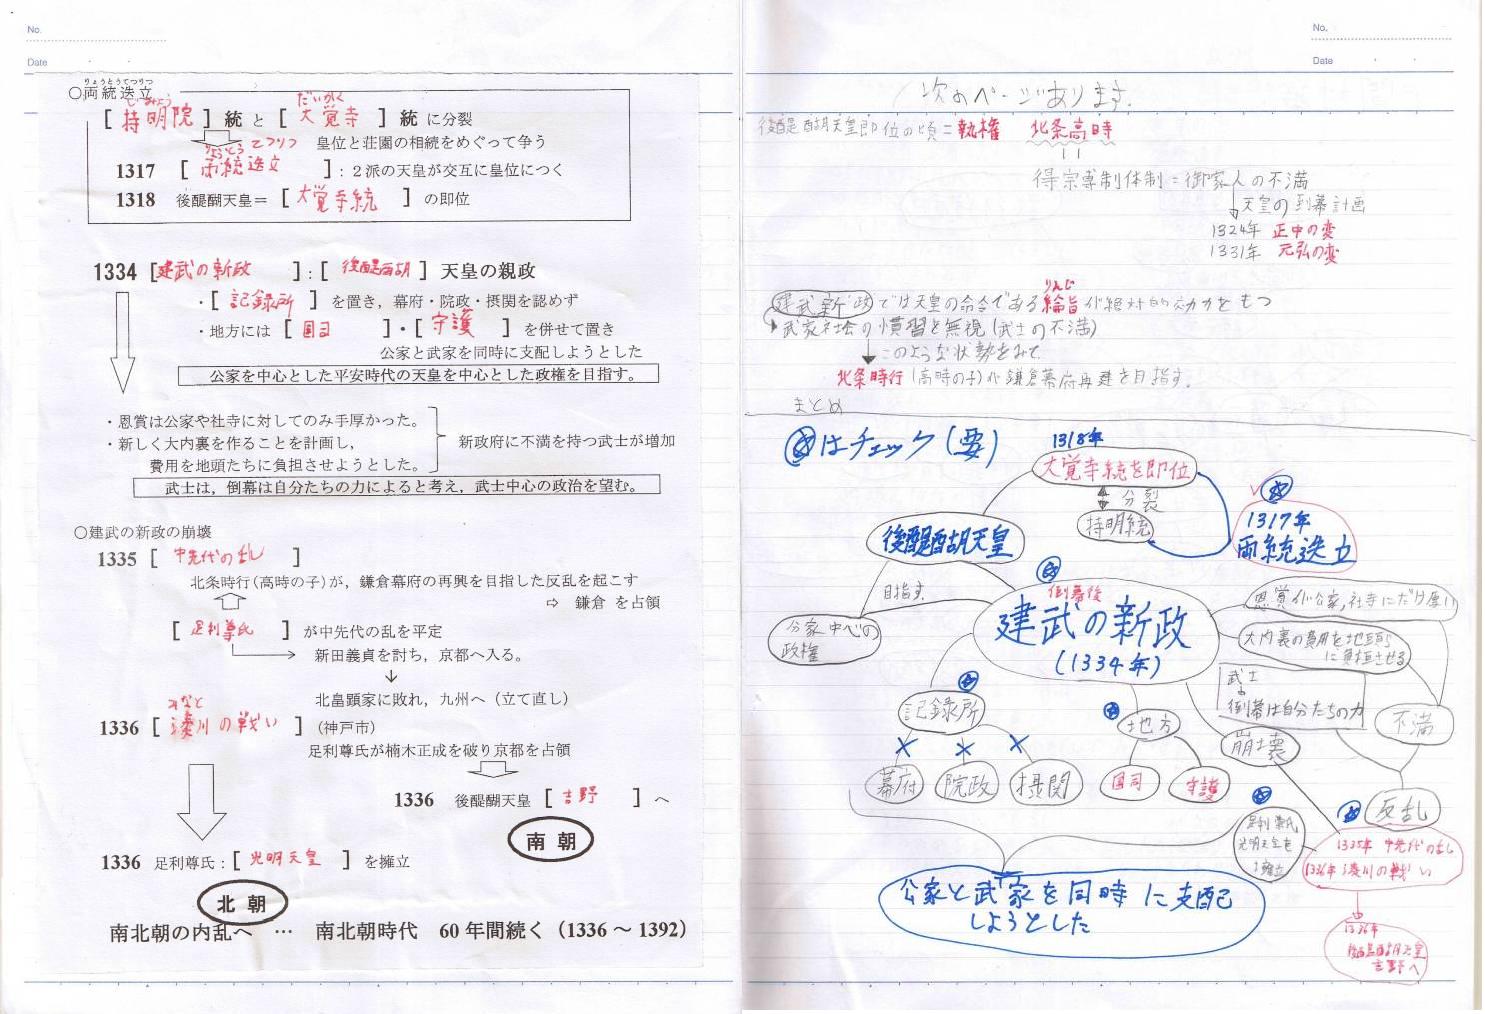 No.
Date
りょうとうてつりつ
○両統迭立
じみょう だいかく
[ 持明院 ] 統 と [ 大覚寺 ] 統 に分裂
皇位と荘園の相続をめぐって争う
りょうとう てつりつ
1317 [ 両統迭立 ]：2派の天皇が交互に皇位につく
1318 後醍醐天皇＝ [ 大覚寺統 ] の即位
1334 [建武の新政 ]：[ 後醍醐 ] 天皇の親政
・[ 記録所 ] を置き，幕府・院政・摂関を認めず
・地方には [ 国司 ]・[ 守護 ] を併せて置き
公家と武家を同時に支配しようとした
公家を中心とした平安時代の天皇を中心とした政権を目指す。
・恩賞は公家や社寺に対してのみ手厚かった。
・新しく大内裏を作ることを計画し，
費用を地頭たちに負担させようとした。
新政府に不満を持つ武士が増加
武士は，倒幕は自分たちの力によると考え，武士中心の政治を望む。
○建武の新政の崩壊
1335 [ 中先代の乱 ]
北条時行(高時の子)が，鎌倉幕府の再興を目指した反乱を起こす
⇨ 鎌倉 を占領
[ 足利尊氏 ] が中先代の乱を平定
新田義貞を討ち，京都へ入る。
↓
北畠顕家に敗れ，九州へ（立て直し）
みなと
1336 [ 湊川の戦い ]（神戸市）
足利尊氏が楠木正成を破り京都を占領
1336 後醍醐天皇 [ 吉野 ] へ
南 朝
1336 足利尊氏：[ 光明天皇 ] を擁立
北 朝
南北朝の内乱へ … 南北朝時代 60年間続く（1336 ～ 1392）
No.
Date
次のページあります.
後醍醐天皇即位の頃＝執権 北条高時
得宗専制体制＝御家人の不満
天皇の倒幕計画
1324年 正中の変
1331年 元弘の変
りんじ
建武新政では天皇の命令である綸旨が絶対的効力をもつ
武家社会の慣習を無視(武士の不満)
このような状勢をみて
北条時行(高時の子)が鎌倉幕府再建を目指す.
まとめ
☆はチェック(要)
1318年
大覚寺統を即位
分裂
持明統
☆
1317年
両統迭立
後醍醐天皇
目指す
公家中心の
政権
☆
倒幕後
建武の新政
(1334年)
恩賞が公家,社寺にだけ厚い
大内裏の費用を地頭に
負担させる
武士
倒幕は自分たちの力
不満
崩壊
反乱
☆
記録所
幕府
院政
摂関
☆
地方
国司
守護
☆
足利尊氏
光明天皇を
擁立
☆
1335年 中先代の乱
1336年 湊川の戦い
1336年
後醍醐天皇
吉野へ
公家と武家を同時に支配
しようとした